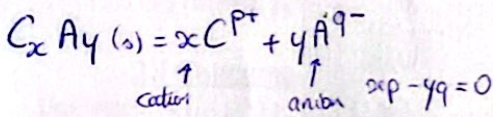 CₓAy (s) = xCᵖ⁺ + yA^q⁻
cation anion xp - yq = 0